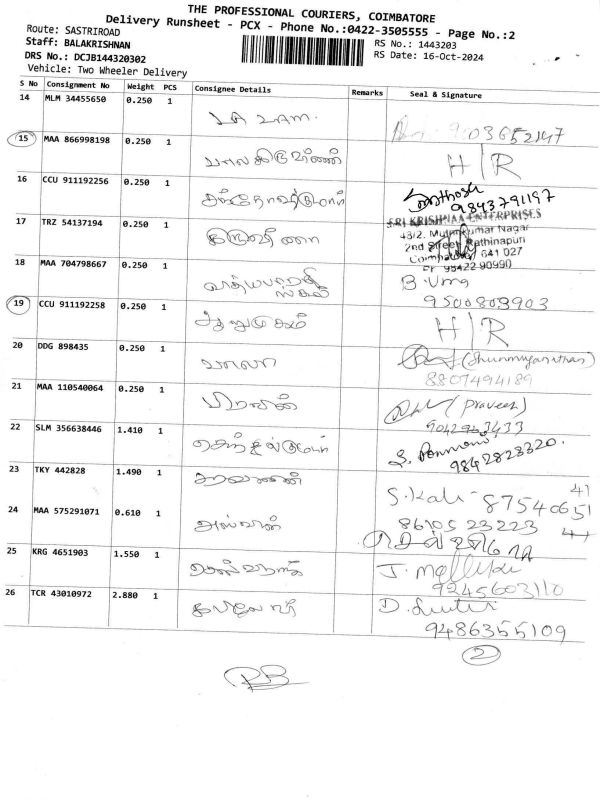 THE PROFESSIONAL COURIERS, COIMBATORE
Delivery Runsheet - PCX - Phone No.:0422-3505555 - Page No.:2
Route: SASTRIROAD
Staff: BALAKRISHNAN
RS No.: 1443203
DRS No.: DCJB144320302
RS Date: 16-Oct-2024
Vehicle: Two Wheeler Delivery
S No Consignment No Weight PCS Consignee Details Remarks Seal & Signature
14 MLM 34455650 0.250 1
15 MAA 866998198 0.250 1 பாலகிருஷ்ணன் H/R
16 CCU 911192256 0.250 1 Santhosh
9843791197
17 TRZ 54137194 0.250 1 SRI KRISHNAA ENTERPRISES
43/2, Muthukumar Nagar
2nd Street, Rathinapuri
Coimbatore 641 027
95422 90990
18 MAA 704798667 0.250 1 B. Uma
9500803903
19 CCU 911192258 0.250 1 ஆறுமுகம் H/R
20 DDG 898435 0.250 1 பாலா (Shunmuganathan)
8807494189
21 MAA 110540064 0.250 1 பிரவின் (Praveen)
22 SLM 356638446 1.410 1 செந்தில்குமார்
9842823320.
23 TKY 442828 1.490 1 சரவணன் S. Kali - 87540651
41
24 MAA 575291071 0.610 1 8610523223
25 KRG 4651903 1.550 1 செல்வராஜ்
9245603110
26 TCR 43010972 2.880 1 D.
9486355109
2